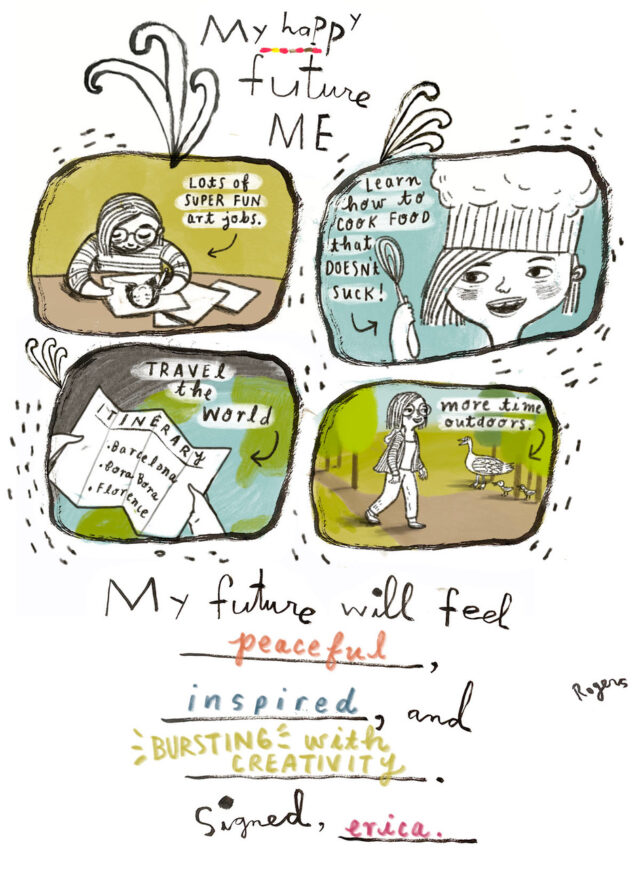 My happy
future
ME
Lots of
SUPER FUN
art jobs.
Learn
how to
COOK FOOD
that
DOESN'T
SUCK!
TRAVEL
the
World
ITINERARY
.Barcelona
.Bora Bora
.Florence
more time
outdoors.
My future will feel
peaceful,
inspired, and
BURSTING with
CREATIVITY.
Signed, erica.
Rogers